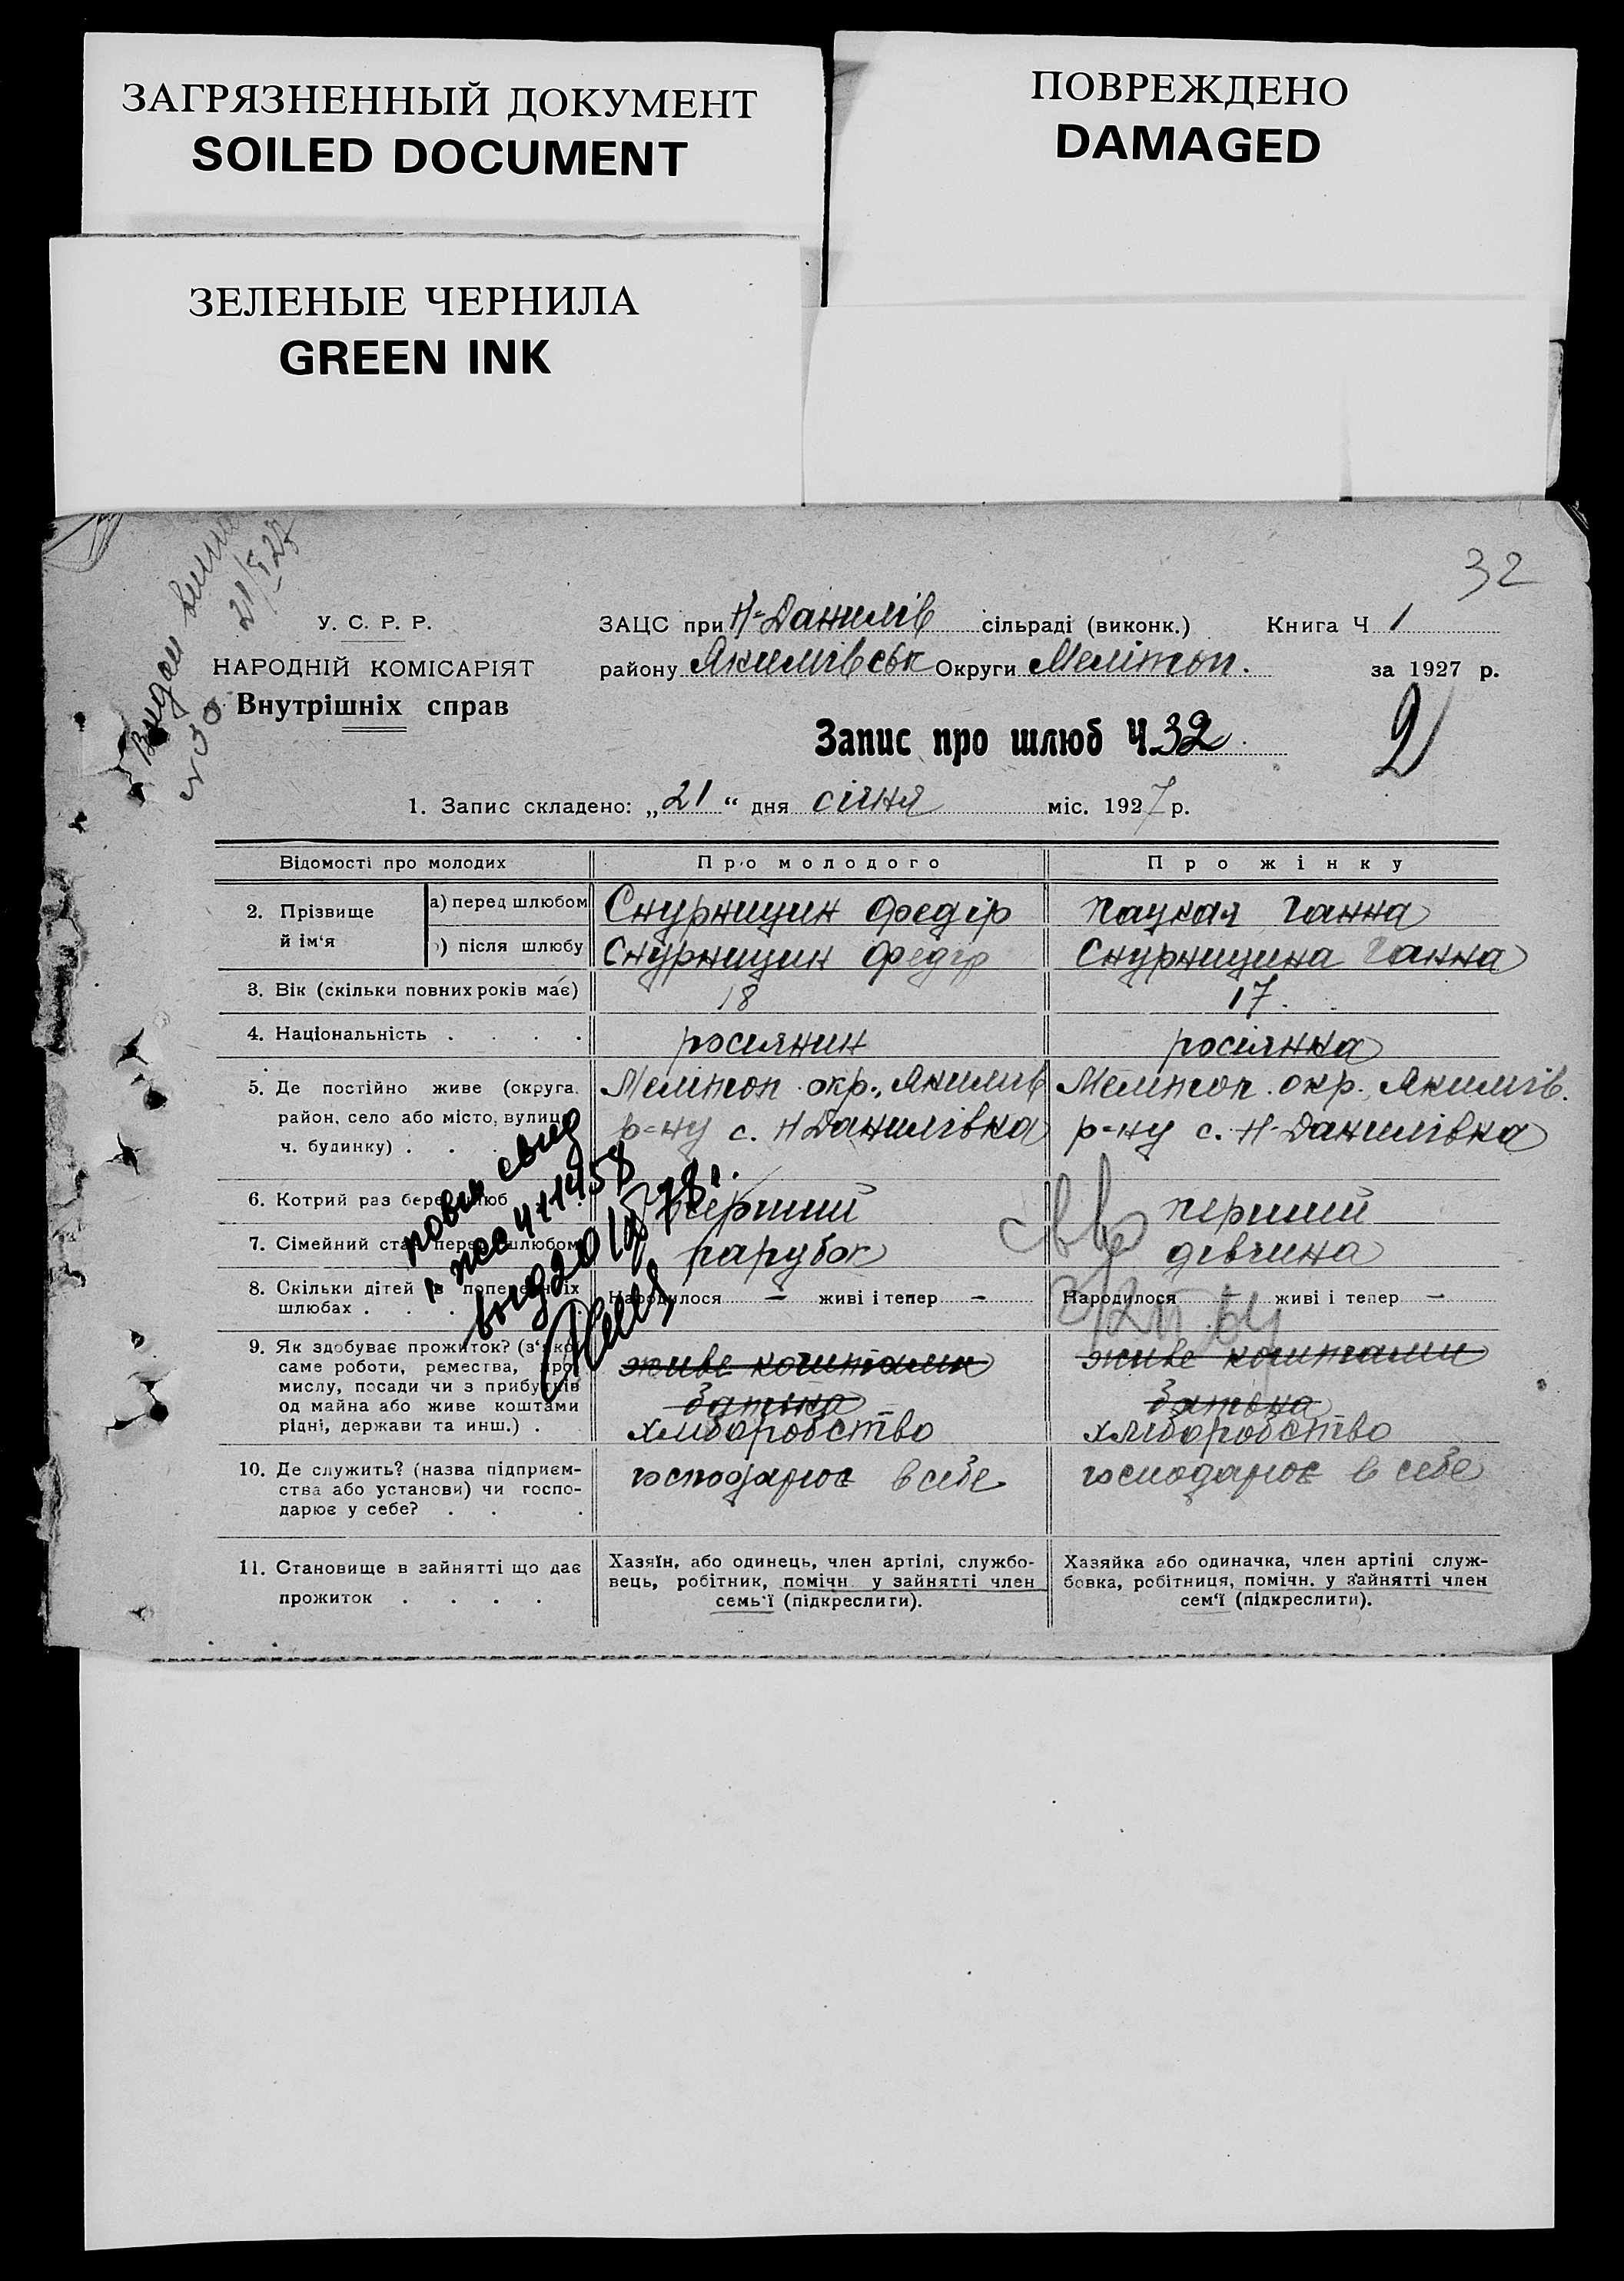 ЗАГРЯЗНЕННЫЙ ДОКУМЕНТ
SOILED DOCUMENT
ПОВРЕЖДЕНО
DAMAGED
ЗЕЛЕНЫЕ ЧЕРНИЛА
GREEN INK
32
Видан
21/I 27
№ 30
У. С. Р. Р.
НАРОДНІЙ КОМІСАРІЯТ
Внутрішніх справ
ЗАЦС при Н-Данилів сільраді (виконк.) Книга Ч 1
району Якимівськ Округи Мелітоп. за 1927 р.
Запис про шлюб Ч. 32
2
1. Запис складено: „21“ дня січня міс. 1927 р.
Відомості про молодих Про молодого Про жінку
2. Прізвище й ім‘я
а) перед шлюбом Снурницин Федір Пацкая Ганна
б) після шлюбу Снурницин Федір Снурницина Ганна
3. Вік (скільки повних років має) 18 17.
4. Національність . . . . росиянин росіянка
5. Де постійно живе (округа, Мелітоп. окр., Якимів Мелітоп. окр., Якимів.
район, село або місто, вулиця р-ну с. Н Данилівка р-ну с. Н-Данилівка
ч. будинку) . .
6. Котрий раз бере шлюб перший перший
7. Сімейний стан перед шлюбом парубок дівчина
8. Скільки дітей в попередніх Народилося — живі і тепер — Народилося — живі і тепер —
шлюбах . . .
повт свид
выд 20/
9. Як здобуває прожиток? (з‘якої живе коштами живе коштами
саме роботи, ремества, про-
мислу, посади чи з прибутків батька батька
од майна або живе коштами
рідні, держави та инш.) . хліборобство хліборобство
10. Де служить? (назва підприєм- господарює в себе господарює в себе
ства або установи) чи госпо-
дарює у себе? . . .
11. Становище в зайнятті що дає
прожиток . . . .
Хазяїн, або одинець, член артілі, службо-
вець, робітник, помічн. у зайнятті член
семь‘ї (підкреслити).
Хазяйка або одиначка, член артілі служ-
бовка, робітниця, помічн. у зайнятті член
сем‘ї (підкреслити).